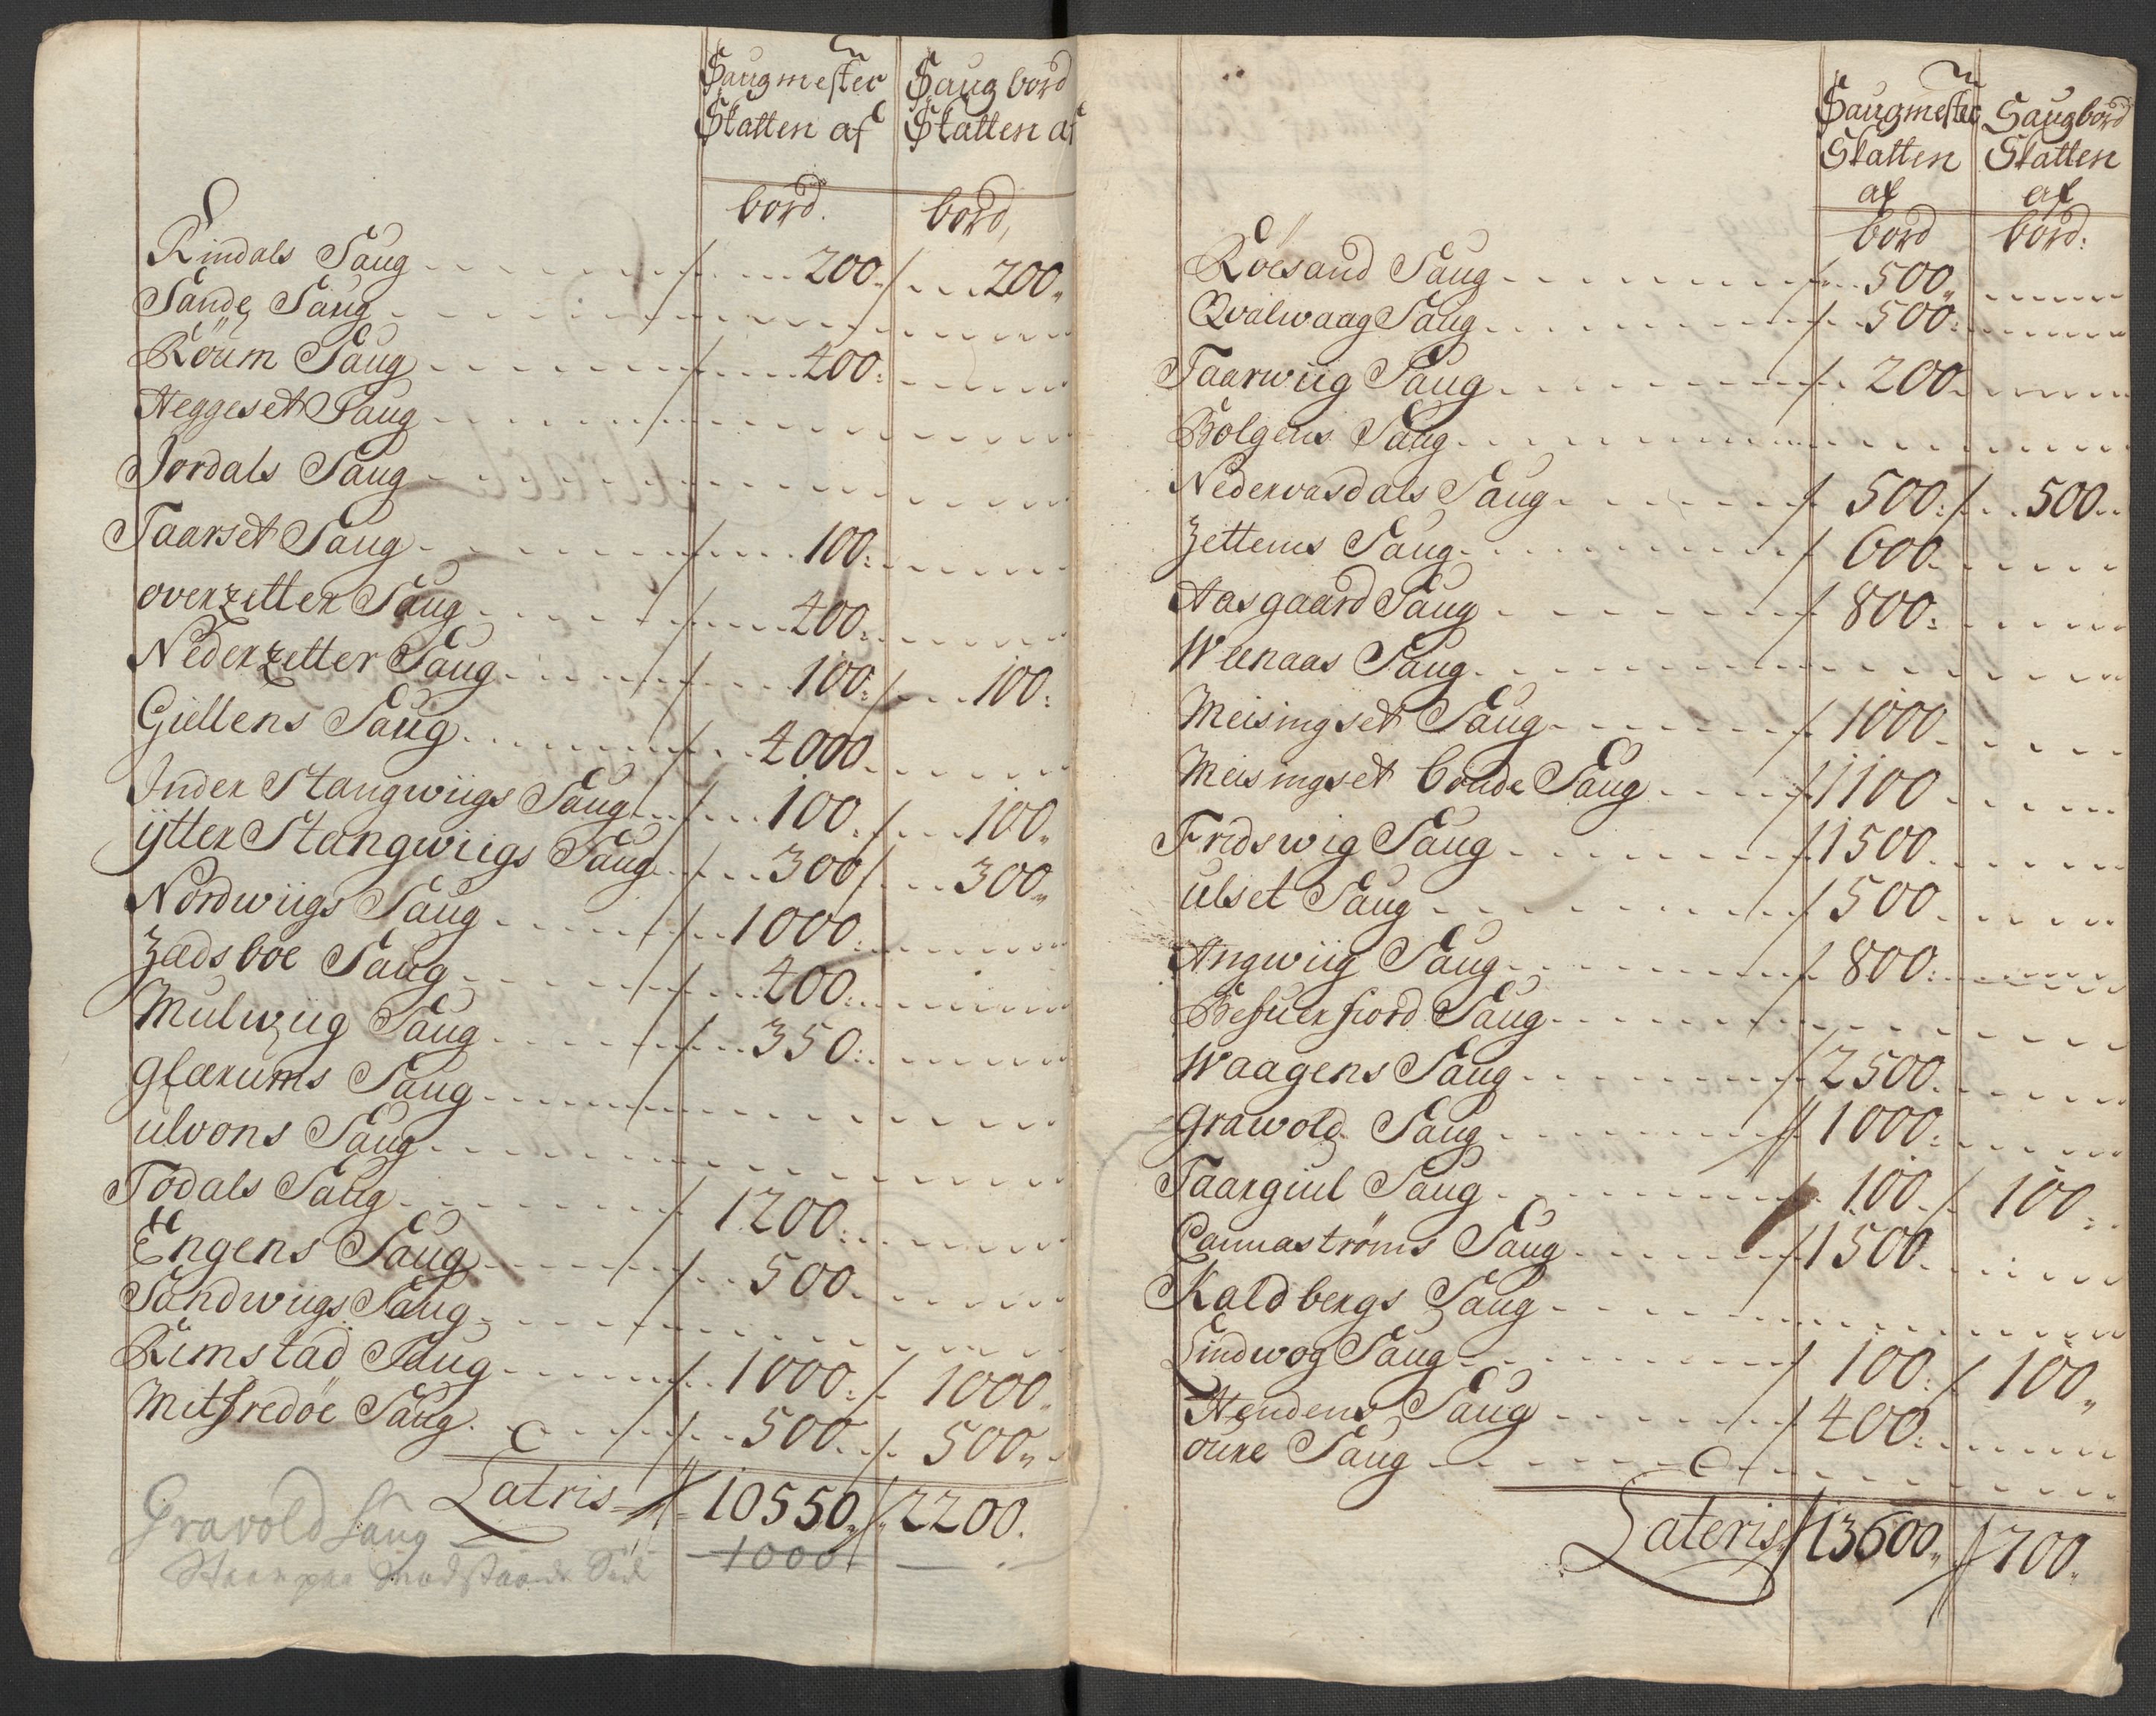 Saugmester Saugbord
Skatten af Skatten af
bord. bord,
Rindals Saug 200. 200.
Sande Saug
Röum Saug 400:
Heggeset Saug
Jordals Saug
Taarset Saug 100:
overzetter Saug 400:
Nederzetter Saug 100: 100:
Giellens Saug 4000.
Inder Stangwiigs Saug 100. 100.
ÿtter Stangwiigs Saug 300 300.
Nordwiigs Saug 1000.
Zædsboe Saug 400.
Mulwiig Saug 350.
Glærums Saug
ulvons Saug
Todals Saug 1200.
Engens Saug 500.
Sandwiigs Saug
Rimstad Saug 1000. 1000.
Mitfredöe Saug 500. 500.
Latris 10550. 2200.
Gravold Saug 1000
Saugmester Saugbord
Skatten Skatten
af af
bord bord:
Röesand Saug 500.
Qvalwaag Saug 500.
Taarwiig Saug 200.
Bolgens Saug
Nedervasdals Saug 500. 500.
Zettems Saug 600.
Aasgaard Saug 800.
Weenaas Saug
Meisingset Saug 1000.
Meisingset bonde Saug 1100.
Fridswig Saug 1500.
ulset Saug 500.
Angwiig Saug 800.
Befuerfiord Saug
Waagens Saug 2500.
Grawold Saug 1000.
Taargiul Saug 100. 100.
Cannaströms Saug 1500.
Kaldbergs Saug
Lindwog Saug 100. 100.
Hendens Saug 400.
oure Saug
Lateris 13600. 700.